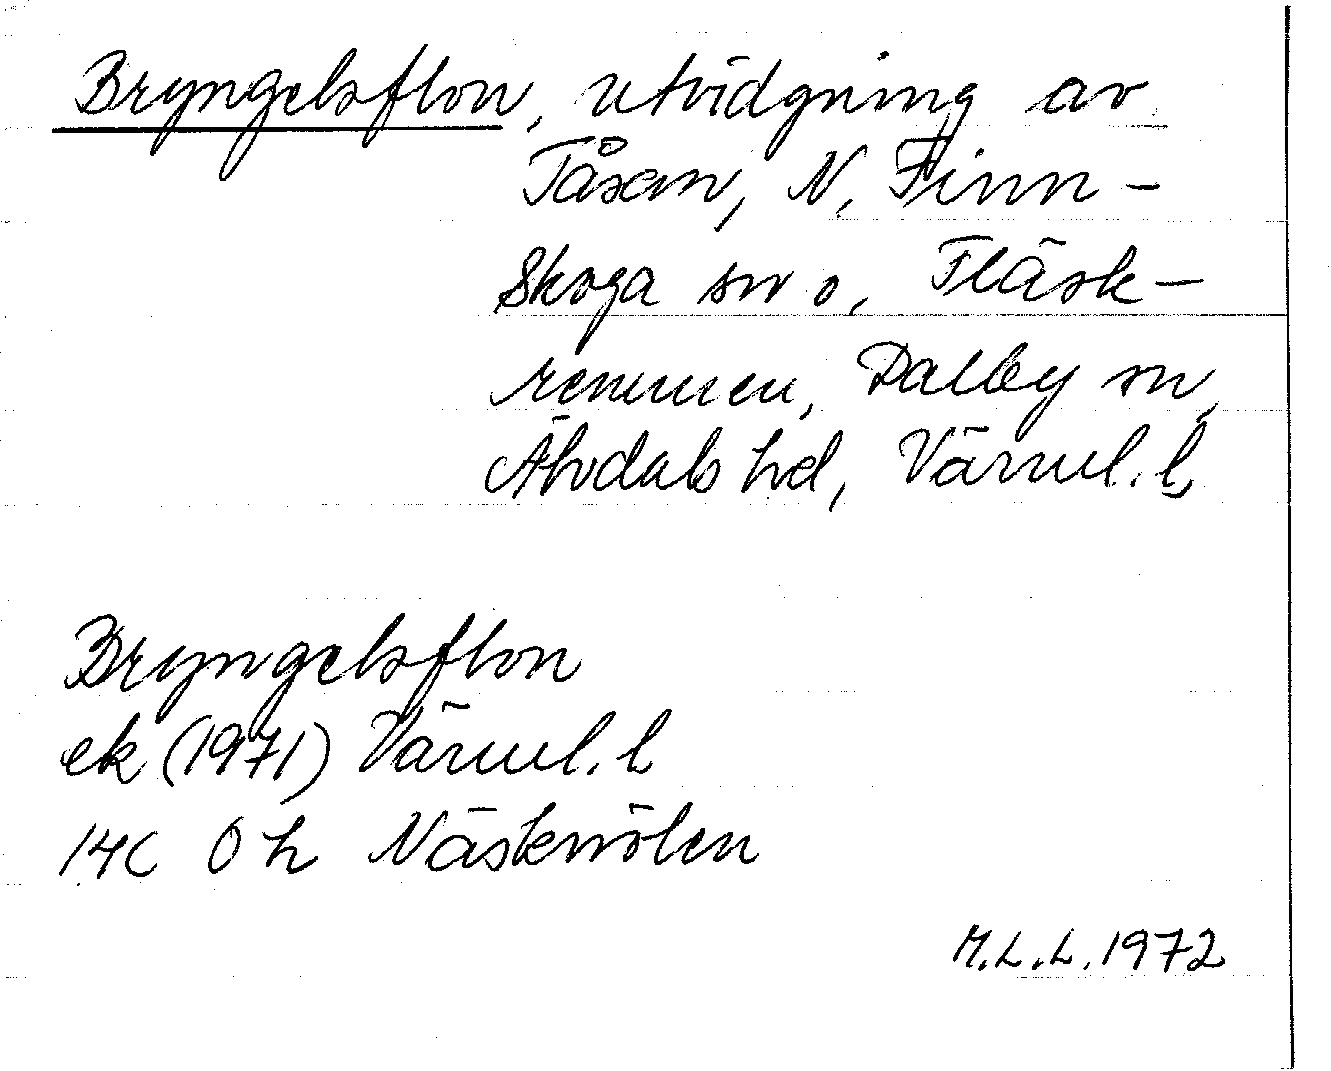 Bryngelsflon, utvidgning av
Tåsan, N. Finn-
Skoga sn o. Fläsk-
rennen, Dalby sn,
Älvdals hd, Värml. l.
Bryngelsflon
ek (1971) Värml. l
14c 0 h Näsknölen
M.L.L. 1972